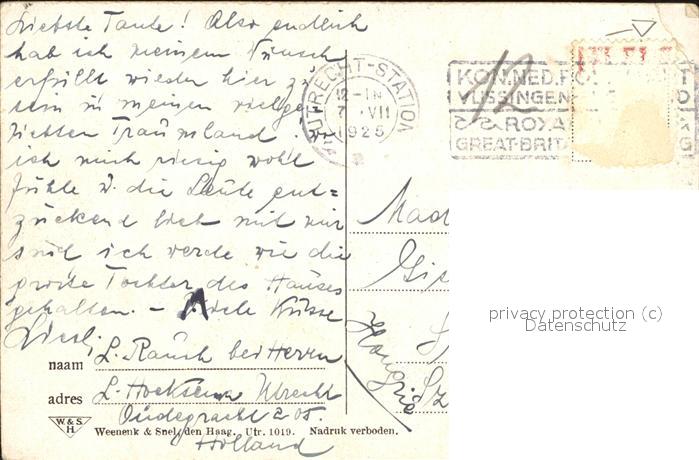 Liebste Tante! Also endlich
hab ich meinem Wunsch
erfüllt wieder hier zu
sein in meinen vielge
liebten Traumland. wo
ich mich riesig wohl
fühle u. die Leute ent=
zückend lieb mit mir
sind ich werde wie die
grosse Tochter des Hauses
gehalten. – Viele Küsse
Liesl.
naam L. Rausch bei Herrn
adres L. Hoeksema Utrecht
Oudegracht 205
Holland
W. & S.
H.
Weenenk & Snel, den Haag. Utr. 1019. Nadruk verboden.
UTRECHT-STATION
12-1N
7 VII
1925
KON.NED.PO
VLISSINGEN
ROYA
GREAT-BRIT
Mad
Gis
Sz
Hongrie
privacy protection (c)
Datenschutz